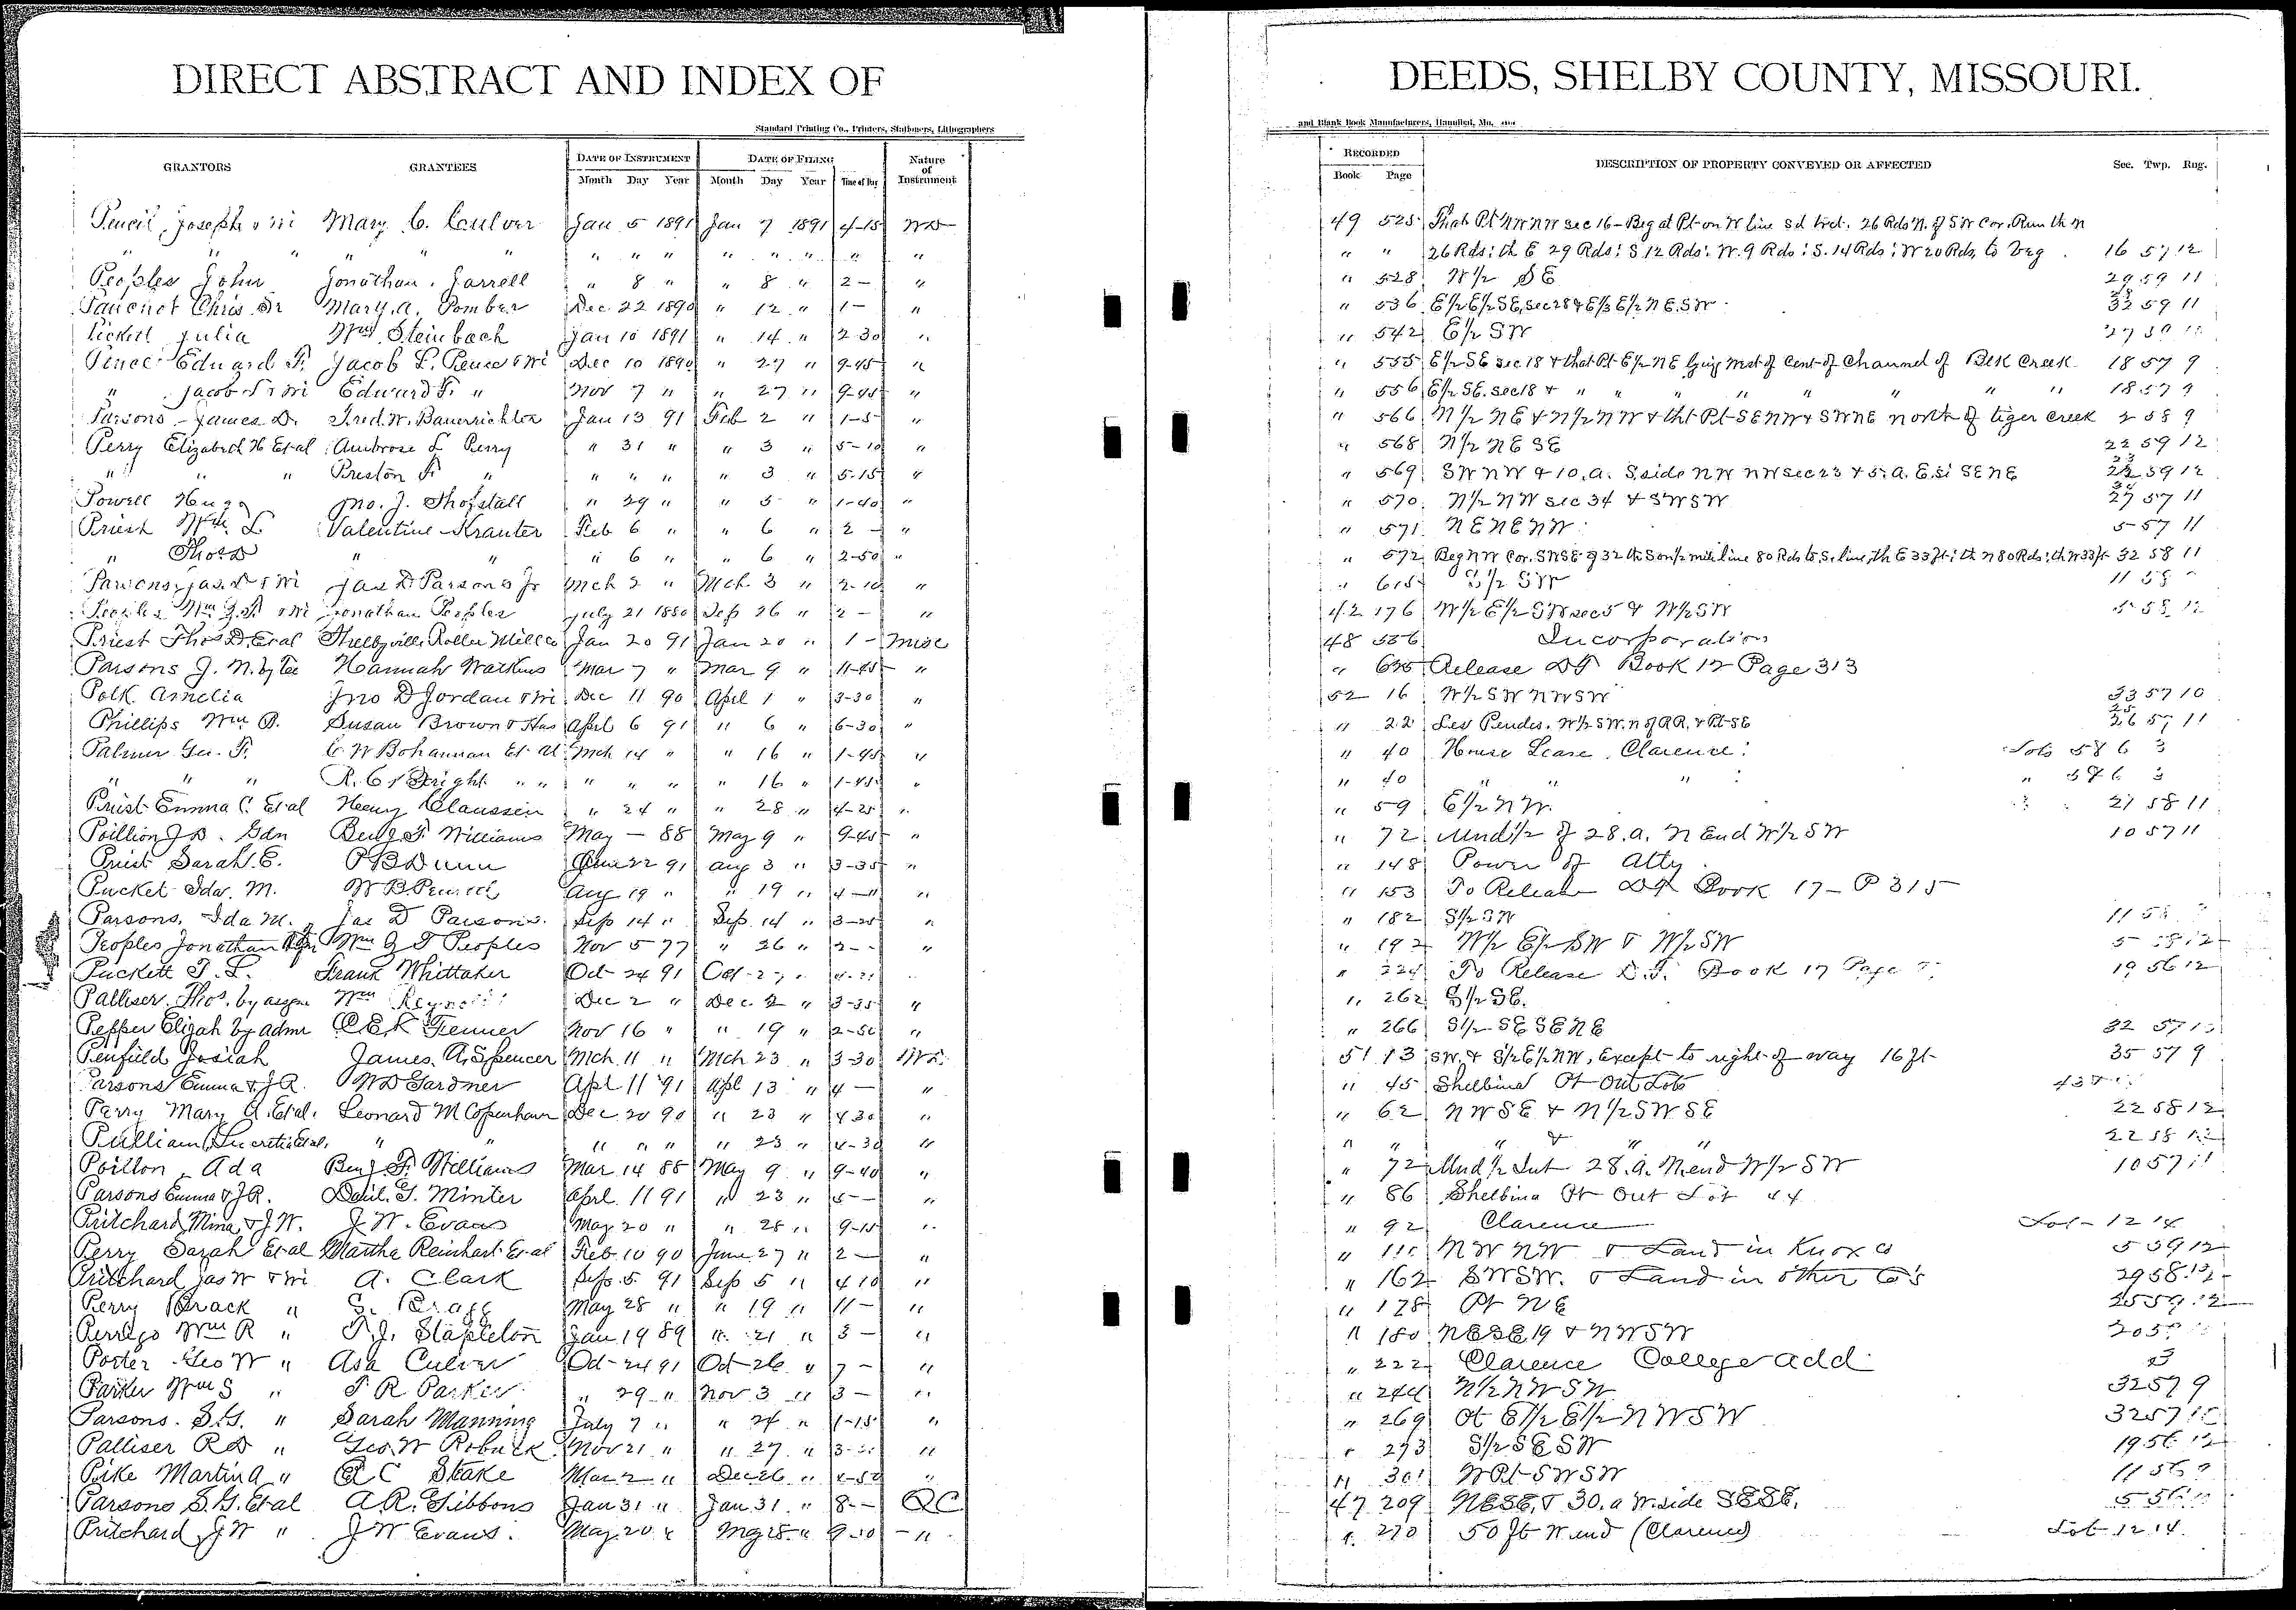 DIRECT ABSTRACT AND INDEX OF DEEDS, SHELBY COUNTY, MISSOURI.
Standard Printing Co., Printers, Stationers, Lithographers and Blank Book Manufacturers, Hannibal, Mo.
GRANTORS GRANTEES DATE OF INSTRUMENT DATE OF FILING Nature of Instrument RECORDED DESCRIPTION OF PROPERTY CONVEYED OR AFFECTED Sec. Twp. Rng.
Month Day Year Month Day Year Time of Day Book Page
Pencil, Joseph & Wi Mary C. Culver Jan 5 1891 Jan 7 1891 4-15 WD 49 525 That Pt NWNW sec 16 - Beg at Pt on W line sd trct. 26 Rds N. of SW Cor. Run th N
" " " " " " " " " " " " " " " 26 Rds: th E 29 Rds: S 12 Rds: W. 9 Rds: S. 14 Rds: W 20 Rds, to beg. 16 57 12
Peoples John Jonathan Jarrell " 8 " " 8 " 2 - " " 528 W 1/2 SE 29 59 11
Chris Sr Mary A. Pomber Dec 22 1890 " 12 " 1 - " " 536 E 1/2 E 1/2 SE, sec 28 & E 1/3 E 1/2 NE, SW 32 59 11
Pickett Julia Wm Steinbach Jan 10 1891 " 14 " 2 30 " " 542 E 1/2 SW
Pence Edward F. Jacob L. Pence & Wi Dec 10 1890 " 27 " 9-45 " " 555 E 1/2 SE sec 18 & that Pt E 1/2 NE lying West of Cent of Channel of Creek 18 57 9
" Jacob & Wi Edward F. " Nov 7 " " 27 " 9-45 " " 556 E 1/2 SE. sec 18 & " " " " " " 18 57 9
Parsons James D. Fred. W. Bauerrichter Jan 13 91 Feb 2 " 1-5 " " 566 N 1/2 NE & N 1/2 NW & tht Pt SENW & SWNE north of tiger creek 2 58 9
Perry Elizabeth H Et al Ambrose L Perry " 31 " " 3 " 5-10 " " 568 N 1/2 NE SE 22 59 12
" " " Preston F. " " " " " 3 " 5-15 " " 569 SW NW & 10. a. S side NW NW sec 23 & 5. a. E. si SENE 22 59 12
Powell Hugo Jno. J. Shofstall " 29 " " 5 " 1-40 " " 570 N 1/2 NW sec 34 & SWSW 27 57 11
Priest Wm L Valentine Krauter Feb 6 " " 6 " 2 - " " 571 NENENW 5 57 11
" Thos D " " " 6 " " 6 " 2-50 " " 572 Beg NW Cor. SWSE of 32 th S on 1/2 mile line 80 Rds to S. line, th E 33 ft: th N 80 Rds: th W 33 ft 32 58 11
Parsons, Jas. D & Wi Jas D Parsons Jr Mch 2 " Mch 3 " 2-10 " " 615 S 1/2 SW 11 58
Peoples Wm G. T. & Wi Jonathan Peoples July 21 1880 Sep 26 " 2 - " 42 176 W 1/2 E 1/2 SW sec 5 & W 1/2 SW 5 58 12
Priest Thos D. Et al Shelbyville Roller Mill Co Jan 20 91 Jan 20 " 1 - Misc 48 586 Incorporation
Parsons J. N. by Tee Hannah Watkins Mar 7 " Mar 9 " 11-45 " " 625 Release DT Book 12 Page 313
Polk Amelia Jno D Jordan & Wi Dec 11 90 April 1 " 3-30 " 52 16 W 1/2 SW NWSW 33 57 10
Phillips Wm P. Susan Brown & Hus Apl 6 91 " 6 " 6-30 " " 22 Les Pendes. W 1/2 SW. N of RR. & Pt SE 26 57 11
Palmer Geo. F. C. W Bohannan Et Al Mch 14 " " 16 " 1-45 " " 40 House Lease, Clarence: Lots 5 & 6 3
" " " R. C. " " " " " " 16 " 1-45 " " 40 " " " " 5 & 6 3
Priest Emma C. Et al Henry Claussen " 24 " " 28 " 4-25 " " 59 E 1/2 NW. 21 58 11
Poillion J B. Gdn Benj. F. Williams May - 88 May 9 " 9-45 " " 72 Und 1/2 of 28. a. N End W 1/2 SW 10 57 11
Priest Sarah. E. P B Dunn June 22 91 Aug 3 " 3-35 " " 148 Power of Atty
Pucket Ida. M. W B Aug 19 " " 19 " 4-11 " " 153 To Release DT Book 17 - P 315
Parsons, Ida M. Jas D Parsons. Sep 14 " Sep. 14 " 3-25 " " 182 S 1/2 SW 11 58
Peoples Jonathan Wm G T Peoples Nov 5 77 " 26 " 2 - " " 192 W 1/2 E 1/2 SW & W 1/2 SW 5 58 12
Puckett T. L. Frank Whittaker Oct 24 91 Oct 27 " " 224 To Release D. T. Book 17 Page 19 56 12
Palliser, Thos. by assgne Wm Dec 2 " Dec. 2 " 3-35 " " 262 S 1/2 SE.
Pepper Elijah by Admr C. E. K Fenner Nov 16 " " 19 " 2-50 " " 266 S 1/2 SE SENE 32 57
Penfield Josiah James. A. Spencer Mch 11 " Mch 23 " 3-30 WD. 51 13 SW. & S 1/2 E 1/2 NW, Except to right of way 16 ft 35 57 9
Parsons Emma & J R. W D Gardner Apl 11 91 Apl 13 " 4 - " " 45 Shelbina Pt Out Lots
Perry Mary A. Et al. Leonard M Copenhaver Dec. 20 90 " 23 " 4 30 " " 62 NWSE & N 1/2 SWSE 22 58 12
Pulliam, Lucretia Et al, " " " " " " 23 " 4-30 " " " " & " " 22 58 12
Poillon, Ada Benj. F. Williams Mar 14 88 May 9 " 9-40 " " 72 Und 1/2 Int 28. a. N. end W 1/2 SW 10 57 11
Parsons Emma & J R. Danl. G. Minter Aprl. 11 91 " 23 " 5 - " " 86 Shelbina Pt Out Lot 44
Pritchard, Mina, & J. W. J. W. Evans May 20 " " 28 " 9-15 " " 92 Clarence Lot 12 14
Perry Sarah Et al Martha Reinhart Et al Feb 10 90 June 27 " 2 - " " NW NW & Land in Knox Co 5 59 12
Pritchard Jas W & Wi A. Clark Sep. 5 91 Sep 5 " 4 10 " " 162 SWSW. & Land in other Co's 29 58 12
Perry Brack " S. Bragg May 28 " " 19 " 11 - " " 178 Pt NE 25 59 12
Perrigo Wm R " T. J. Stapleton Jan 19 89 " 21 " 3 - " " 180 NESE 19 & NWSW
Porter Geo W " Asa Culver Oct 24 91 Oct 26 " 7 - " " 222 Clarence College add
Parker Wm S " T R Parker " 29 " Nov 3 " 3 - " " 244 N 1/2 NWSW 32 57 9
Parsons. S. G. " Sarah Manning July 7 " " 24 " 1-15 " " 269 Pt E 1/2 E 1/2 NWSW 32 57 10
Palliser R D " Geo. W Robuck Nov 21 " " 27 " " " 273 S 1/2 SESW 19 56 12
Pike Martin A " C Stake Mar 2 " Dec 26 " 4-50 " " 301 W Pt SWSW 11 56 9
Parsons S. G. Et al A. R. Gibbons Jan 31 " Jan. 31 " 8 - QC 47 209 NESE, & 30. a W. side SESE,
Pritchard, J W " J W Evans. May 20 " May 28 " 9-10 " " 270 50 ft W end (Clarence) Lot 12 14